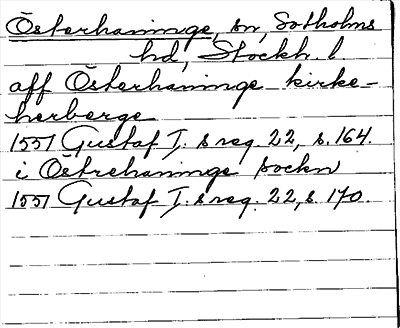 Österhaninge, sn, Sotholms
hd, Stockh. l
aff Österhaninge kirke-
herberge
1551 Gustaf I:s reg. 22, s. 164.
i Östrehaninge sockn
1551 Gustaf I:s reg. 22, s. 170.